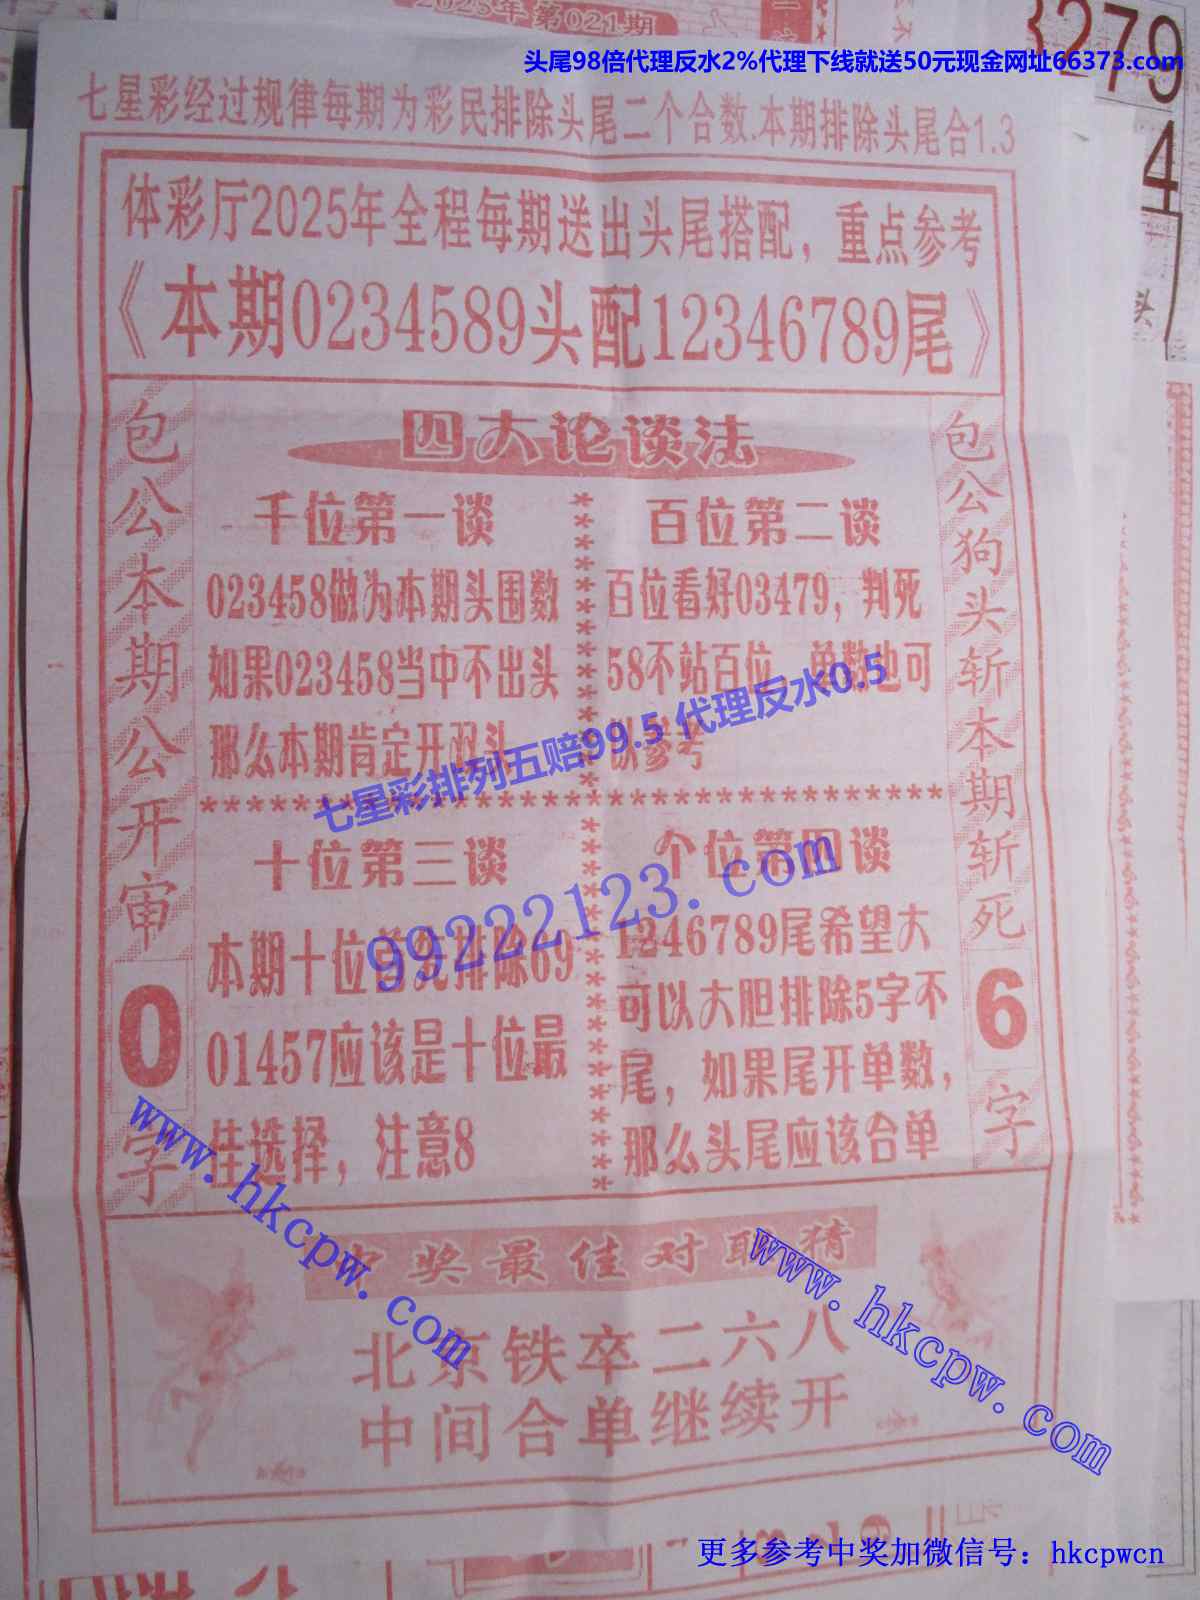 2025年第021期
3279
4
头
头尾98倍代理反水2%代理下线就送50元现金网址66373.com
七星彩经过规律每期为彩民排除头尾二个合数.本期排除头尾合1.3
体彩厅2025年全程每期送出头尾搭配，重点参考
《本期0234589头配12346789尾》
包公本期公开审0字
四大论谈法
千位第一谈
023458做为本期头围数
如果023458当中不出头
那么本期肯定开双头
百位第二谈
百位看好03479，判死
58不站百位，单数也可
以参考
七星彩排列五赔99.5 代理反水0.5
********************************
十位第三谈
本期十位首先排除69
01457应该是十位最
佳选择，注意8
个位第四谈
1246789尾希望大
可以大胆排除5字不
尾，如果尾开单数，
那么头尾应该合单
99222123.com
包公狗头斩本期斩死6字
www.hkcpw.com
中奖最佳对联猜
北京铁卒二六八
中间合单继续开
www.hkcpw.com
更多参考中奖加微信号：hkcpwcn